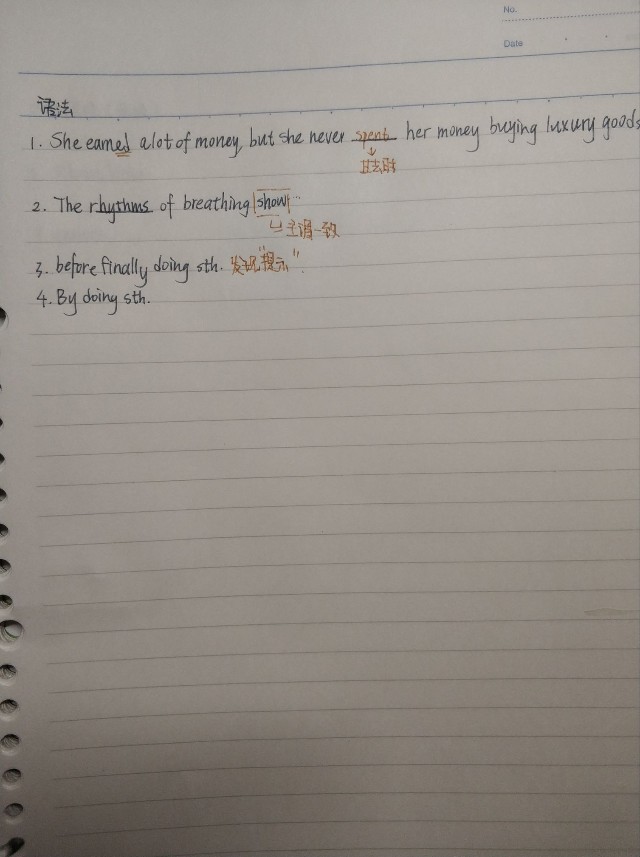 No.
Date
语法
1. She earned a lot of money, but she never spent her money buying luxury goods
过去时
2. The rhythms of breathing show
主谓一致
3. before finally doing sth. 发现"提示".
4. By doing sth.